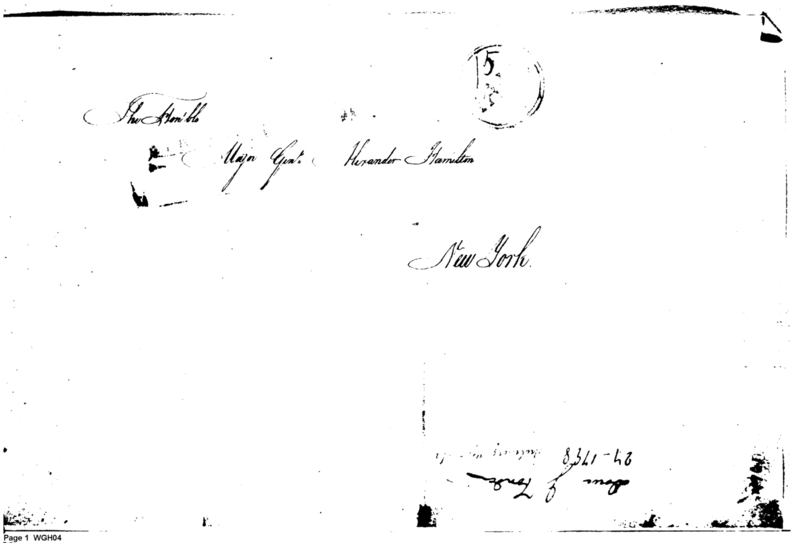 The Hon'ble
Major Gen.l Alexander Hamilton
New York.
24 - 1798
Page 1 WGH04